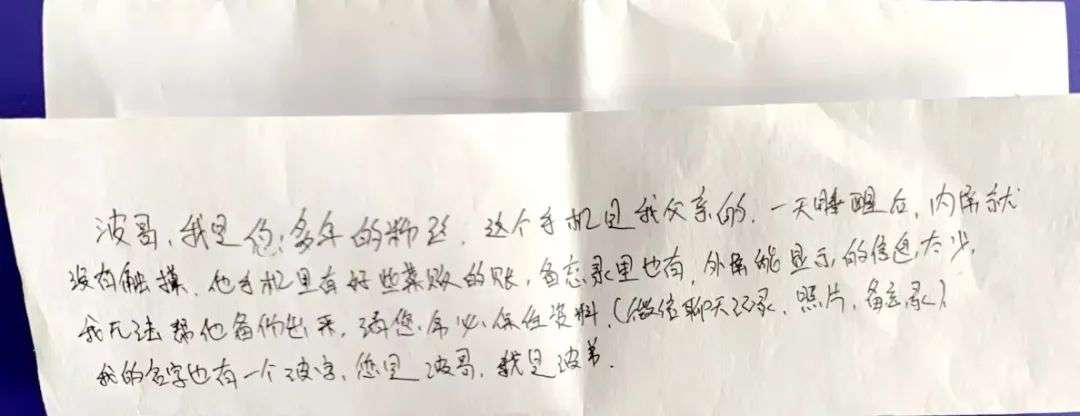 波哥，我是您多年的粉丝，这个手机是我父亲的，一天睡醒后，内屏就
没有触摸，他手机里有好些菜贩的账，备忘录里也有，外屏能显示的信息太少，
我无法帮他备份出来，请您务必保住资料，（微信聊天记录，照片，备忘录）
我的名字也有一个波字，您是波哥，我是波弟．